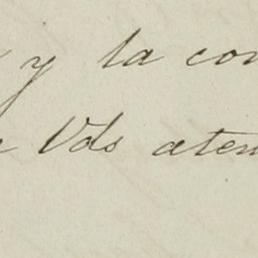 y la con
Vds aten